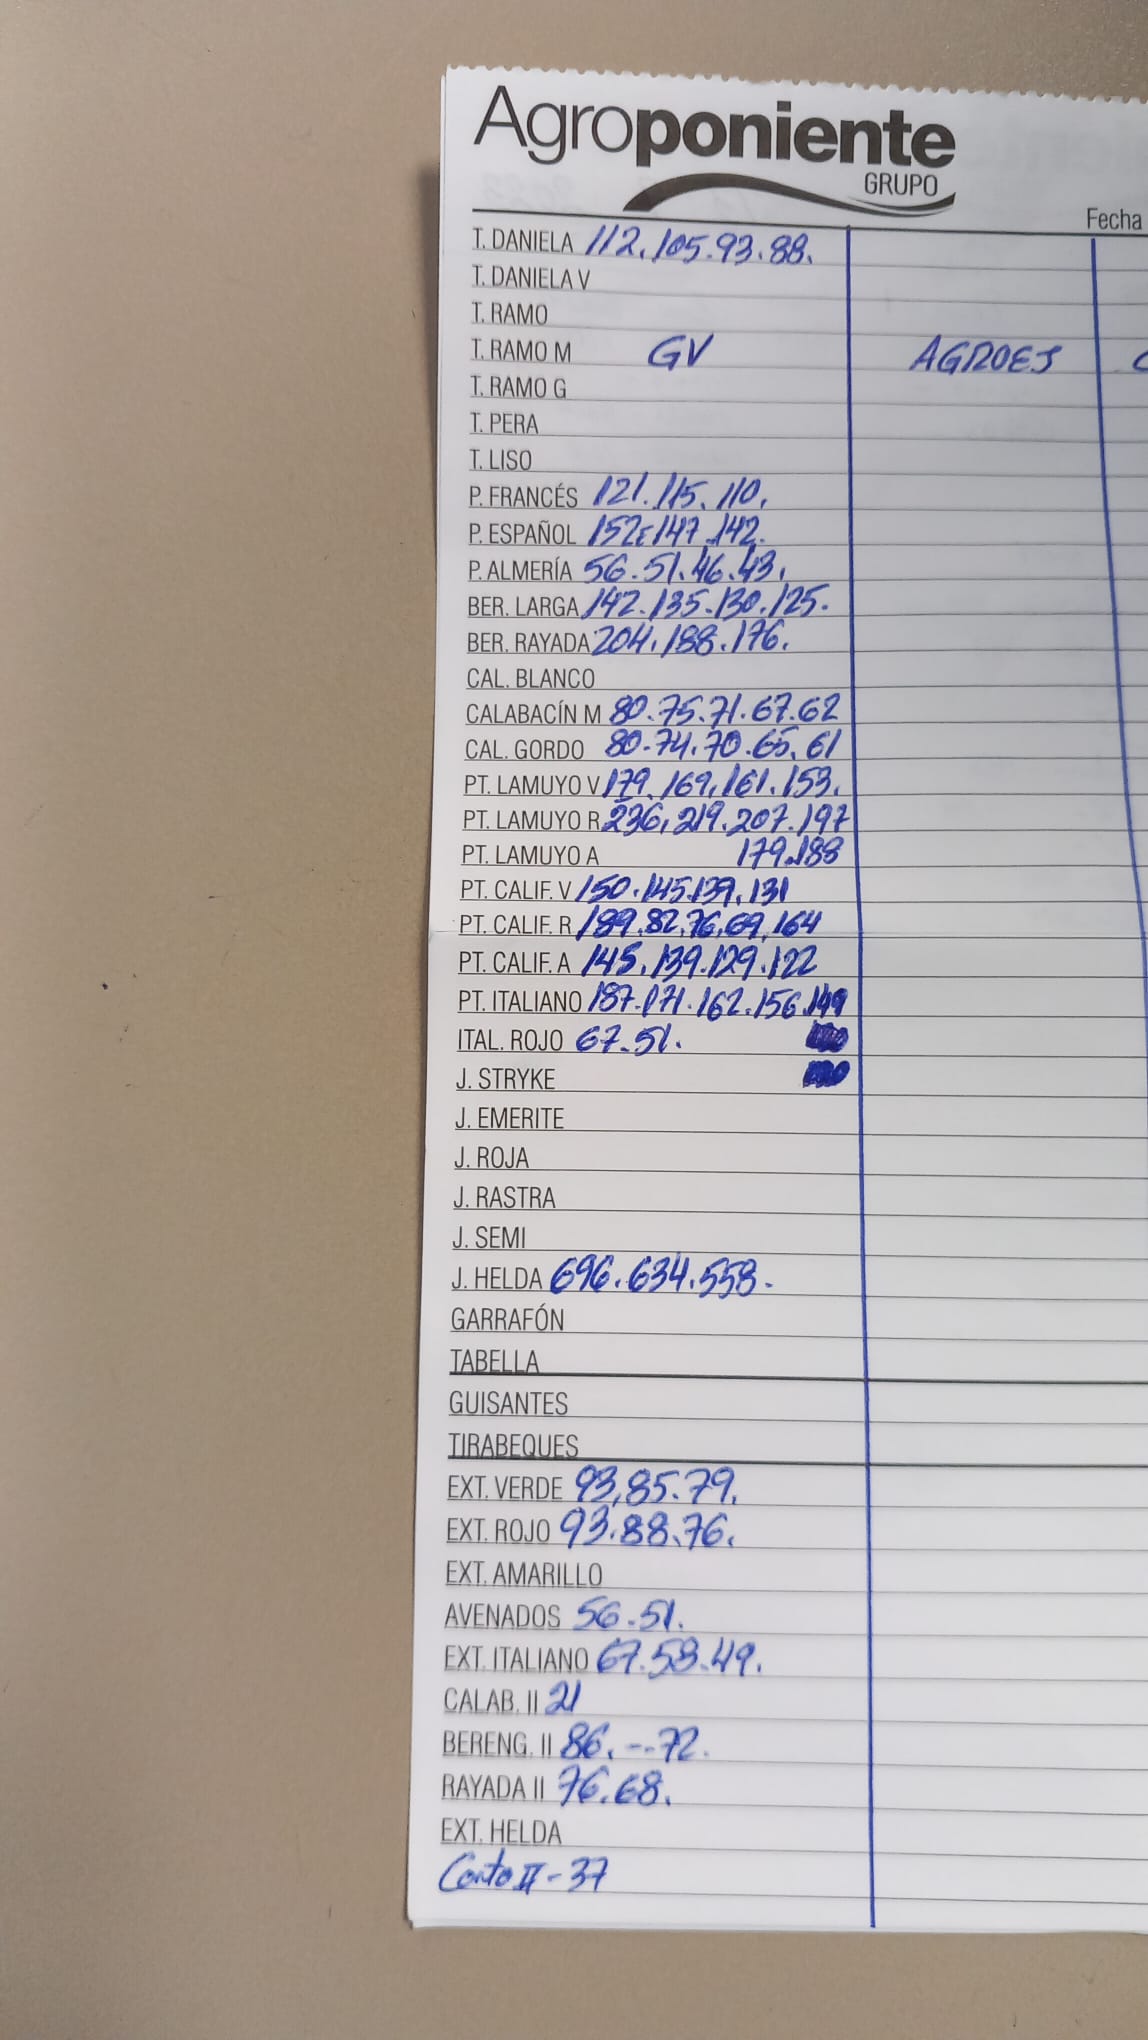 Agroponiente
GRUPO
Fecha
T. DANIELA 112.105.93.88.
T. DANIELA V
T. RAMO
T. RAMO M GV AGROES
T. RAMO G
T. PERA
T. LISO
P. FRANCÉS 121.115.110.
P. ESPAÑOL 152.147.142.
P. ALMERÍA 56.51.46.43.
BER. LARGA 142.135.130.125.
BER. RAYADA 204.188.176.
CAL. BLANCO
CALABACÍN M 80.75.71.67.62
CAL. GORDO 80.74.70.65.61
PT. LAMUYO V 179.169.161.153.
PT. LAMUYO R 236.219.207.197
PT. LAMUYO A 179.188
PT. CALIF. V 150.145.139.131
PT. CALIF. R 189.82.76.69.164
PT. CALIF. A 145.139.129.122
PT. ITALIANO 187.171.162.156.149
ITAL. ROJO 67.51.
J. STRYKE
J. EMERITE
J. ROJA
J. RASTRA
J. SEMI
J. HELDA 696.634.558.
GARRAFÓN
TABELLA
GUISANTES
TIRABEQUES
EXT. VERDE 93.85.79.
EXT. ROJO 93.88.76.
EXT. AMARILLO
AVENADOS 56.51.
EXT. ITALIANO 67.58.49.
CALAB. II 21
BERENG. II 86.--72.
RAYADA II 76.68.
EXT. HELDA
Corto II - 37